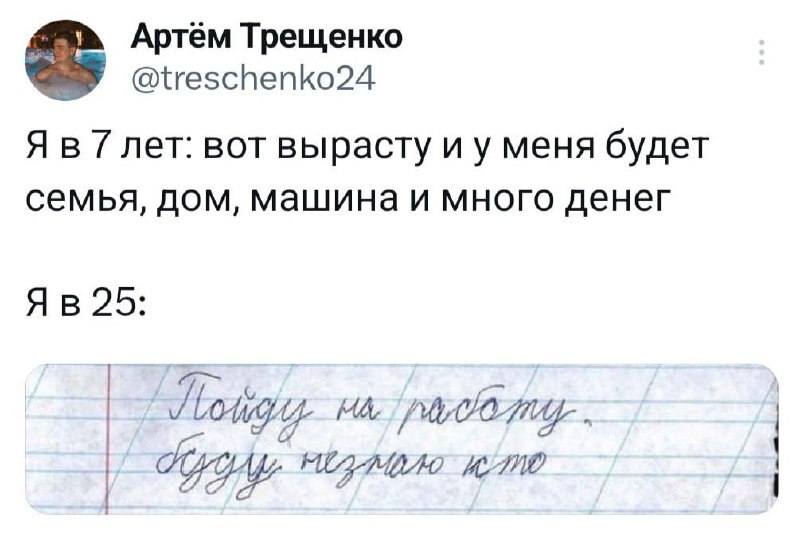 Артём Трещенко
@treschenko24
Я в 7 лет: вот вырасту и у меня будет
семья, дом, машина и много денег
Я в 25:
Пойду на работу.
буду незнаю кто